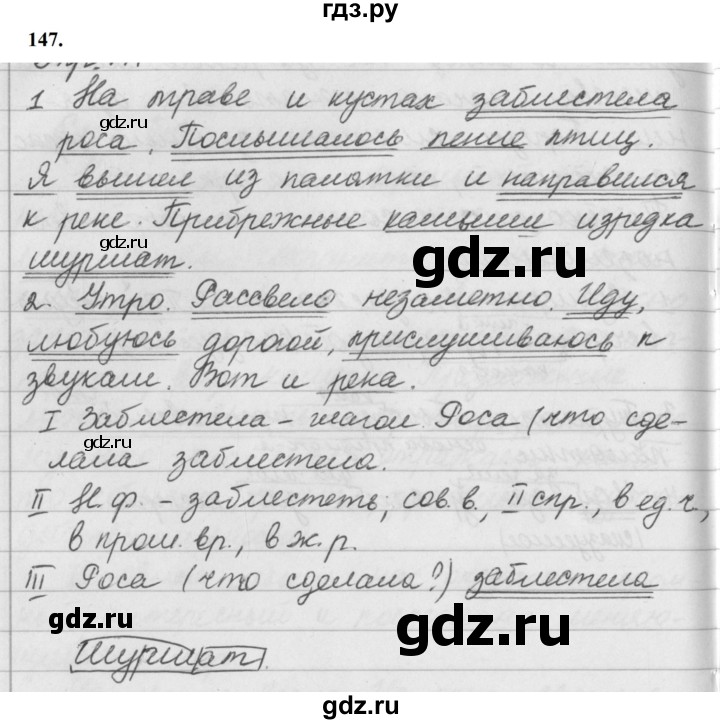 гдз.ру
147.
1 На траве и кустах заблестела
gdz.ru
gdz.ru
роса. Послышалось пение птиц.
Я вышел из палатки и направился
к реке. Прибрежные камыши изредка
gdz.ru
шуршат.
gdz.ru
2. Утро. Рассвело незаметно. Иду,
любуюсь дорогой, прислушиваюсь к
звукам. Вот и река.
gdz.ru
I Заблестела – глагол Роса (что сде-
лала заблестела.
gdz.ru
II Н.ф. – заблестеть, сов.в., II спр., в ед.ч.,
в прош. вр., в ж.р.
III Роса (что сделала?) заблестела
gdz.ru
gdz.ru
Шуршат.
gdz.ru